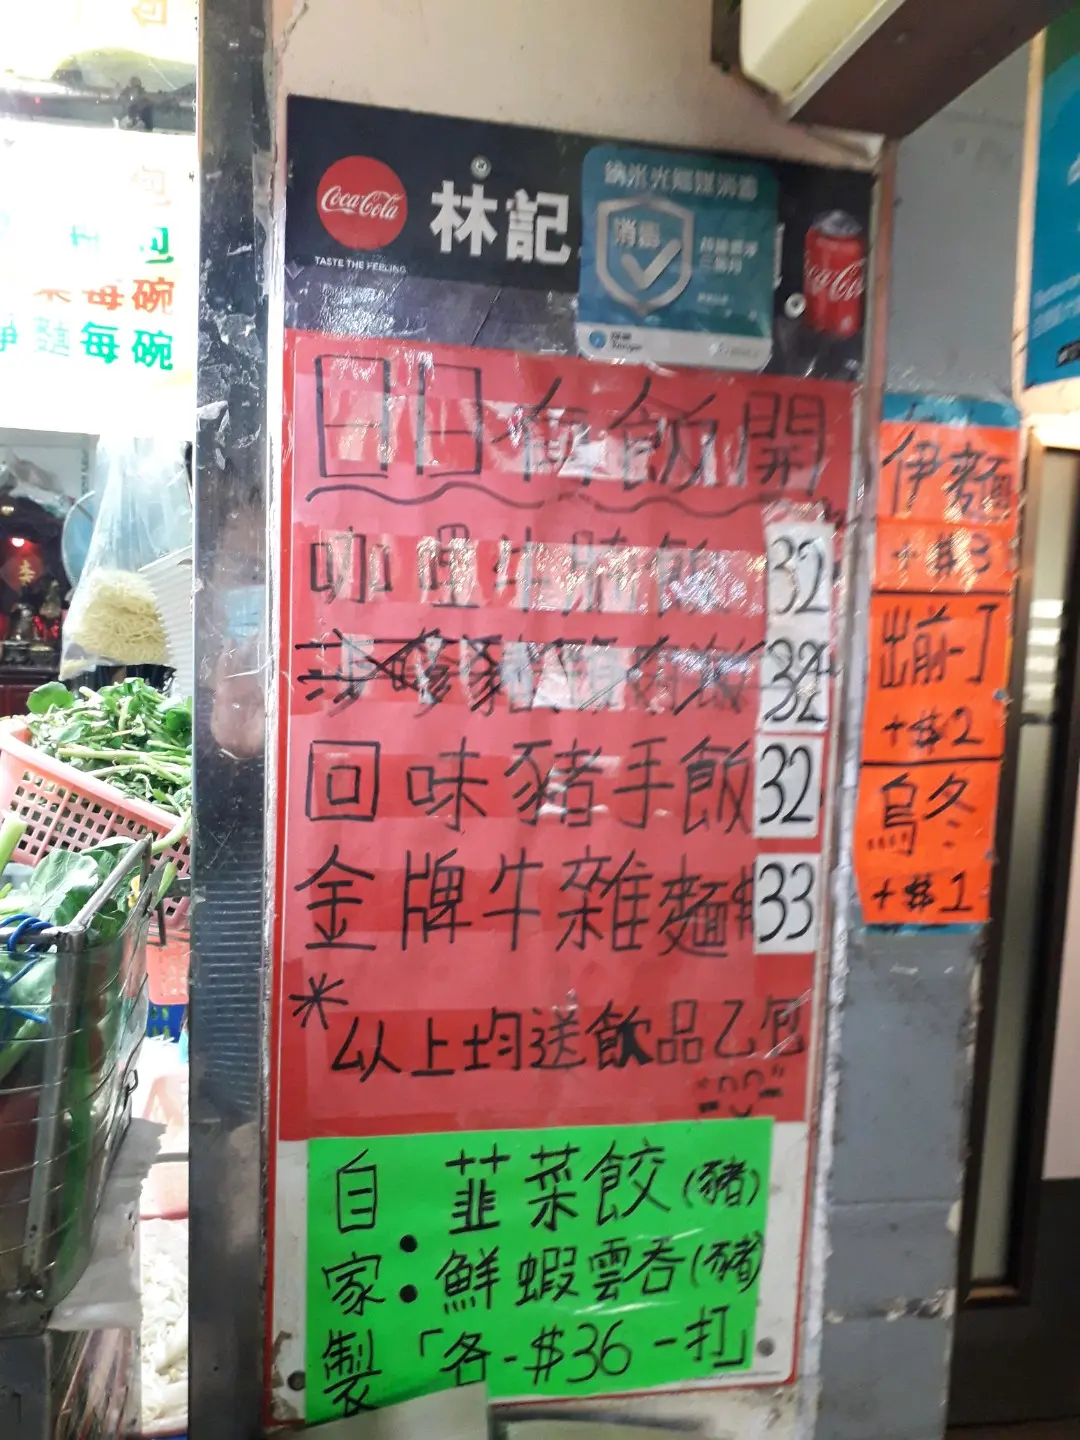 包
包
每碗
淨麵每碗
Coca-Cola
TASTE THE FEELING
林記
納米光觸媒消毒
消毒
Coca-Cola
日日有飯開
咖喱牛腩飯 32
回味豬手飯 32
金牌牛雜麵$33
*以上均送飲品乙包
自家製:
韮菜餃(豬)
鮮蝦雲吞(豬)
「各-$36一打」
伊麵
+$3
出前一丁
+$2
烏冬
+$1